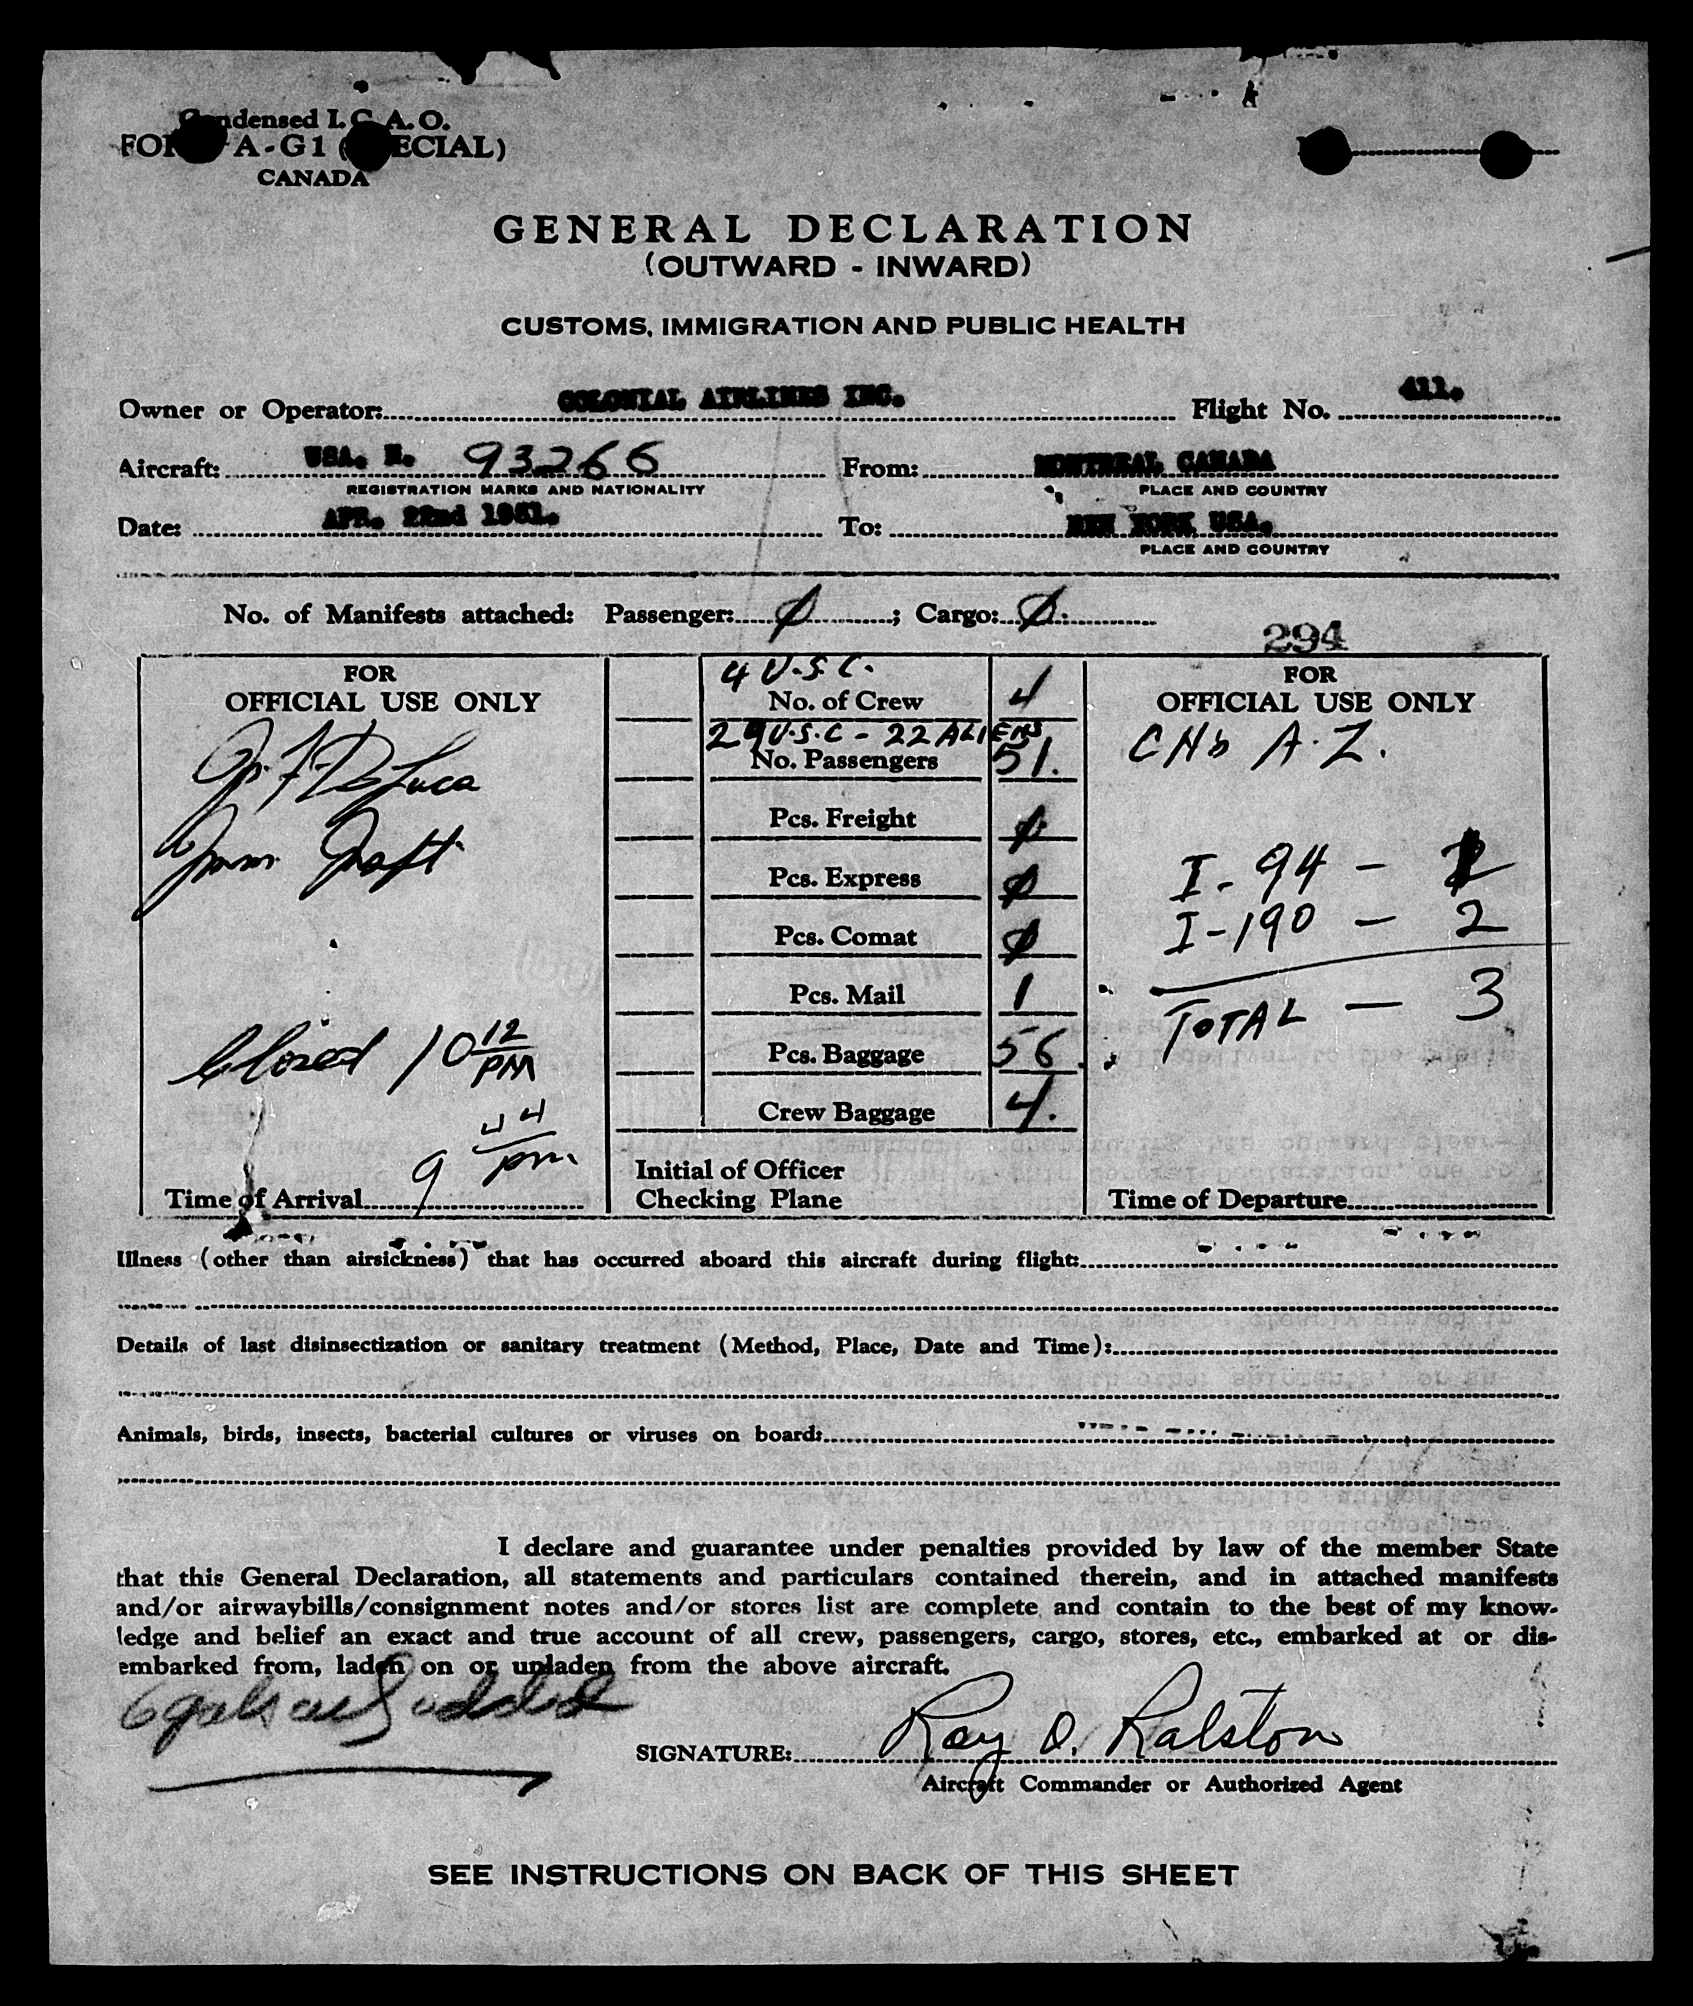 Condensed I.C.A.O.
FORM A-G1 (SPECIAL)
CANADA
GENERAL DECLARATION
(OUTWARD - INWARD)
CUSTOMS, IMMIGRATION AND PUBLIC HEALTH
Owner or Operator: COLONIAL AIRLINES INC. Flight No. 411.
Aircraft: USA. N. 93266 From: MONTREAL CANADA
REGISTRATION MARKS AND NATIONALITY PLACE AND COUNTRY
Date: APR. 22nd 1951. To: NEW YORK USA.
PLACE AND COUNTRY
No. of Manifests attached: Passenger: ∅; Cargo: ∅.
294
FOR
OFFICIAL USE ONLY
De Luca
Closed 10 12 PM
9 44 pm.
Time of Arrival
4 U.S.C.
No. of Crew 4
29 U.S.C - 22 ALIENS
No. Passengers 51.
Pcs. Freight ∅
Pcs. Express ∅
Pcs. Comat ∅
Pcs. Mail 1
Pcs. Baggage 56.
Crew Baggage 4.
Initial of Officer
Checking Plane
FOR
OFFICIAL USE ONLY
A.Z.
I-94 - 1
I-190 - 2
TOTAL - 3
Time of Departure
Illness (other than airsickness) that has occurred aboard this aircraft during flight:
Details of last disinsectization or sanitary treatment (Method, Place, Date and Time):
Animals, birds, insects, bacterial cultures or viruses on board:
I declare and guarantee under penalties provided by law of the member State
that this General Declaration, all statements and particulars contained therein, and in attached manifests
and/or airwaybills/consignment notes and/or stores list are complete and contain to the best of my know-
ledge and belief an exact and true account of all crew, passengers, cargo, stores, etc., embarked at or dis-
embarked from, laden on or unladen from the above aircraft.
6 gals added
SIGNATURE: Ray O. Ralston
Aircraft Commander or Authorized Agent
SEE INSTRUCTIONS ON BACK OF THIS SHEET